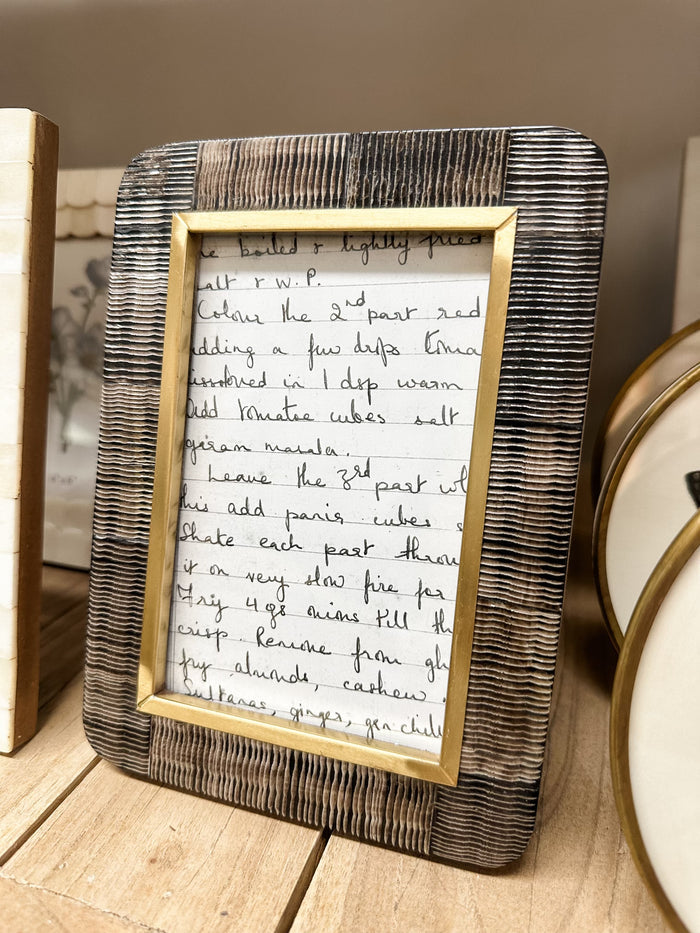 boiled & lightly fried
salt & W.P.
Colour the 2nd part red
adding a few drops toma
issolved in 1 dsp warm
Add tomatoe cubes salt
garam masala.
Leave the 3rd part wh
this add panir cubes s
Shake each part throu
it on very slow fire for
Fry 4 gs onions till th
crisp. Remove from gh
fry almonds, cashew,
Sultanas, ginger, grn chilli